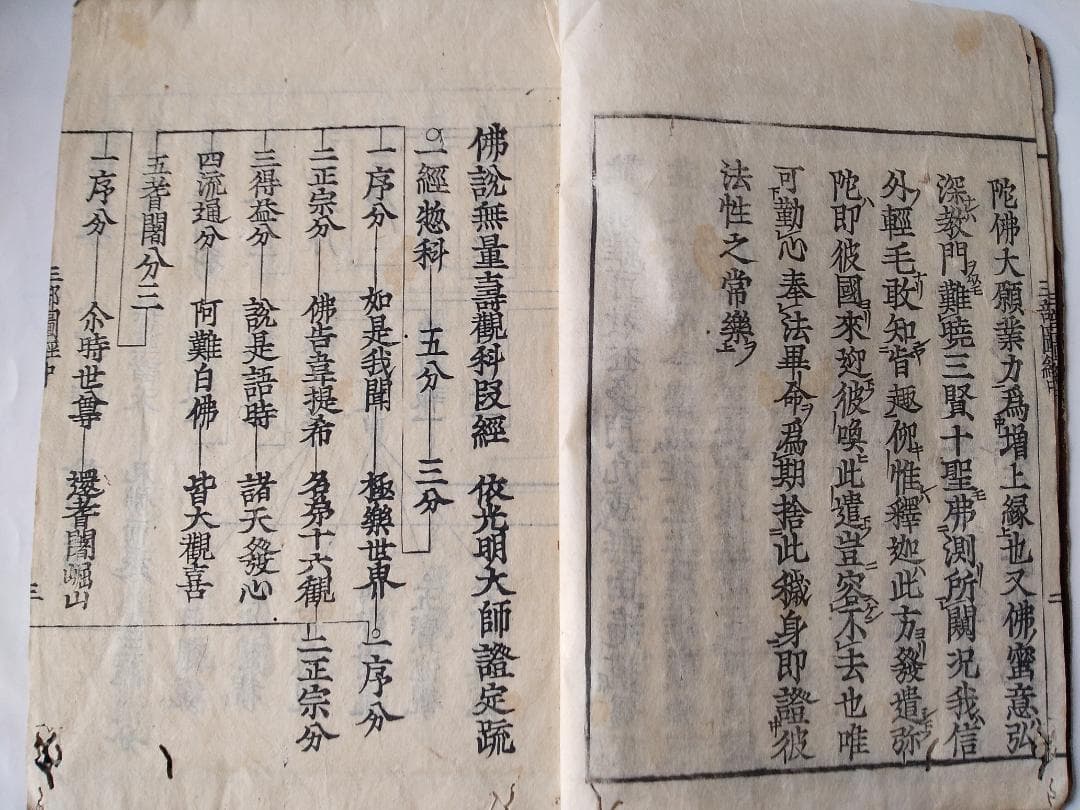 陀佛大願業力爲增上緣也又佛密意弘
深教門難曉三賢十聖弗測所闚況我信
外輕毛敢知旨趣仰惟釋迦此方發遣弥
陀即彼國來迎彼喚此遣豈容不去也唯
可勤心奉法畢命爲期捨此穢身即證彼
法性之常樂
佛說無量壽觀科段經 依光明大師證定疏
○一經惣科 五分 三分
一序分 如是我聞 極樂世界 ○一序分
二正宗分 佛告韋提希 名第十六觀 二正宗分
三得益分 說是語時 諸天發心
四流通分 阿難白佛 皆大觀喜
五耆闍分二
一序分 尒時世尊 還耆闍崛山
三部圖經中 三